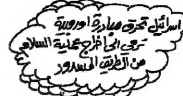 اسرائيل تحرق مبادرة اوروبية
ترمي الى اخراج عملية السلام
من الطريق المسدود